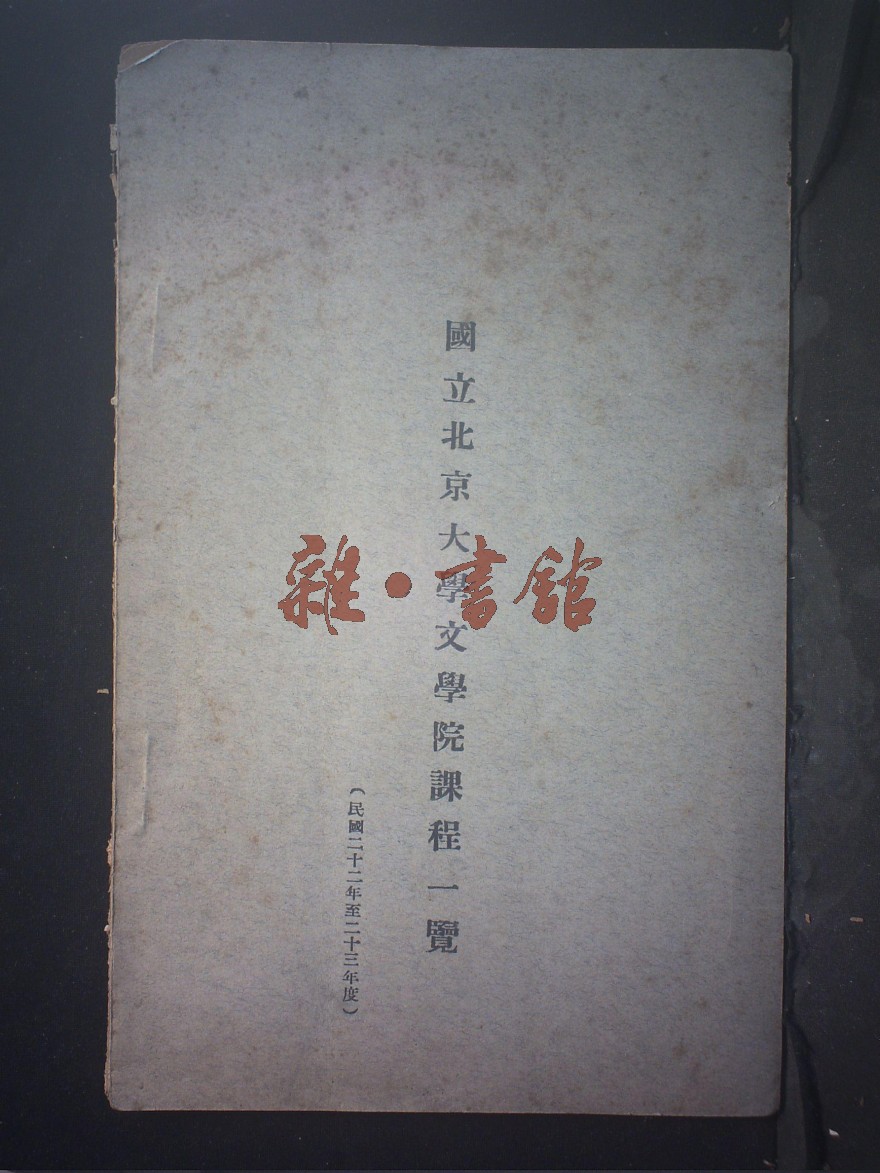 國立北京大學文學院課程一覽
(民國二十二年至二十三年度)
雜•書館